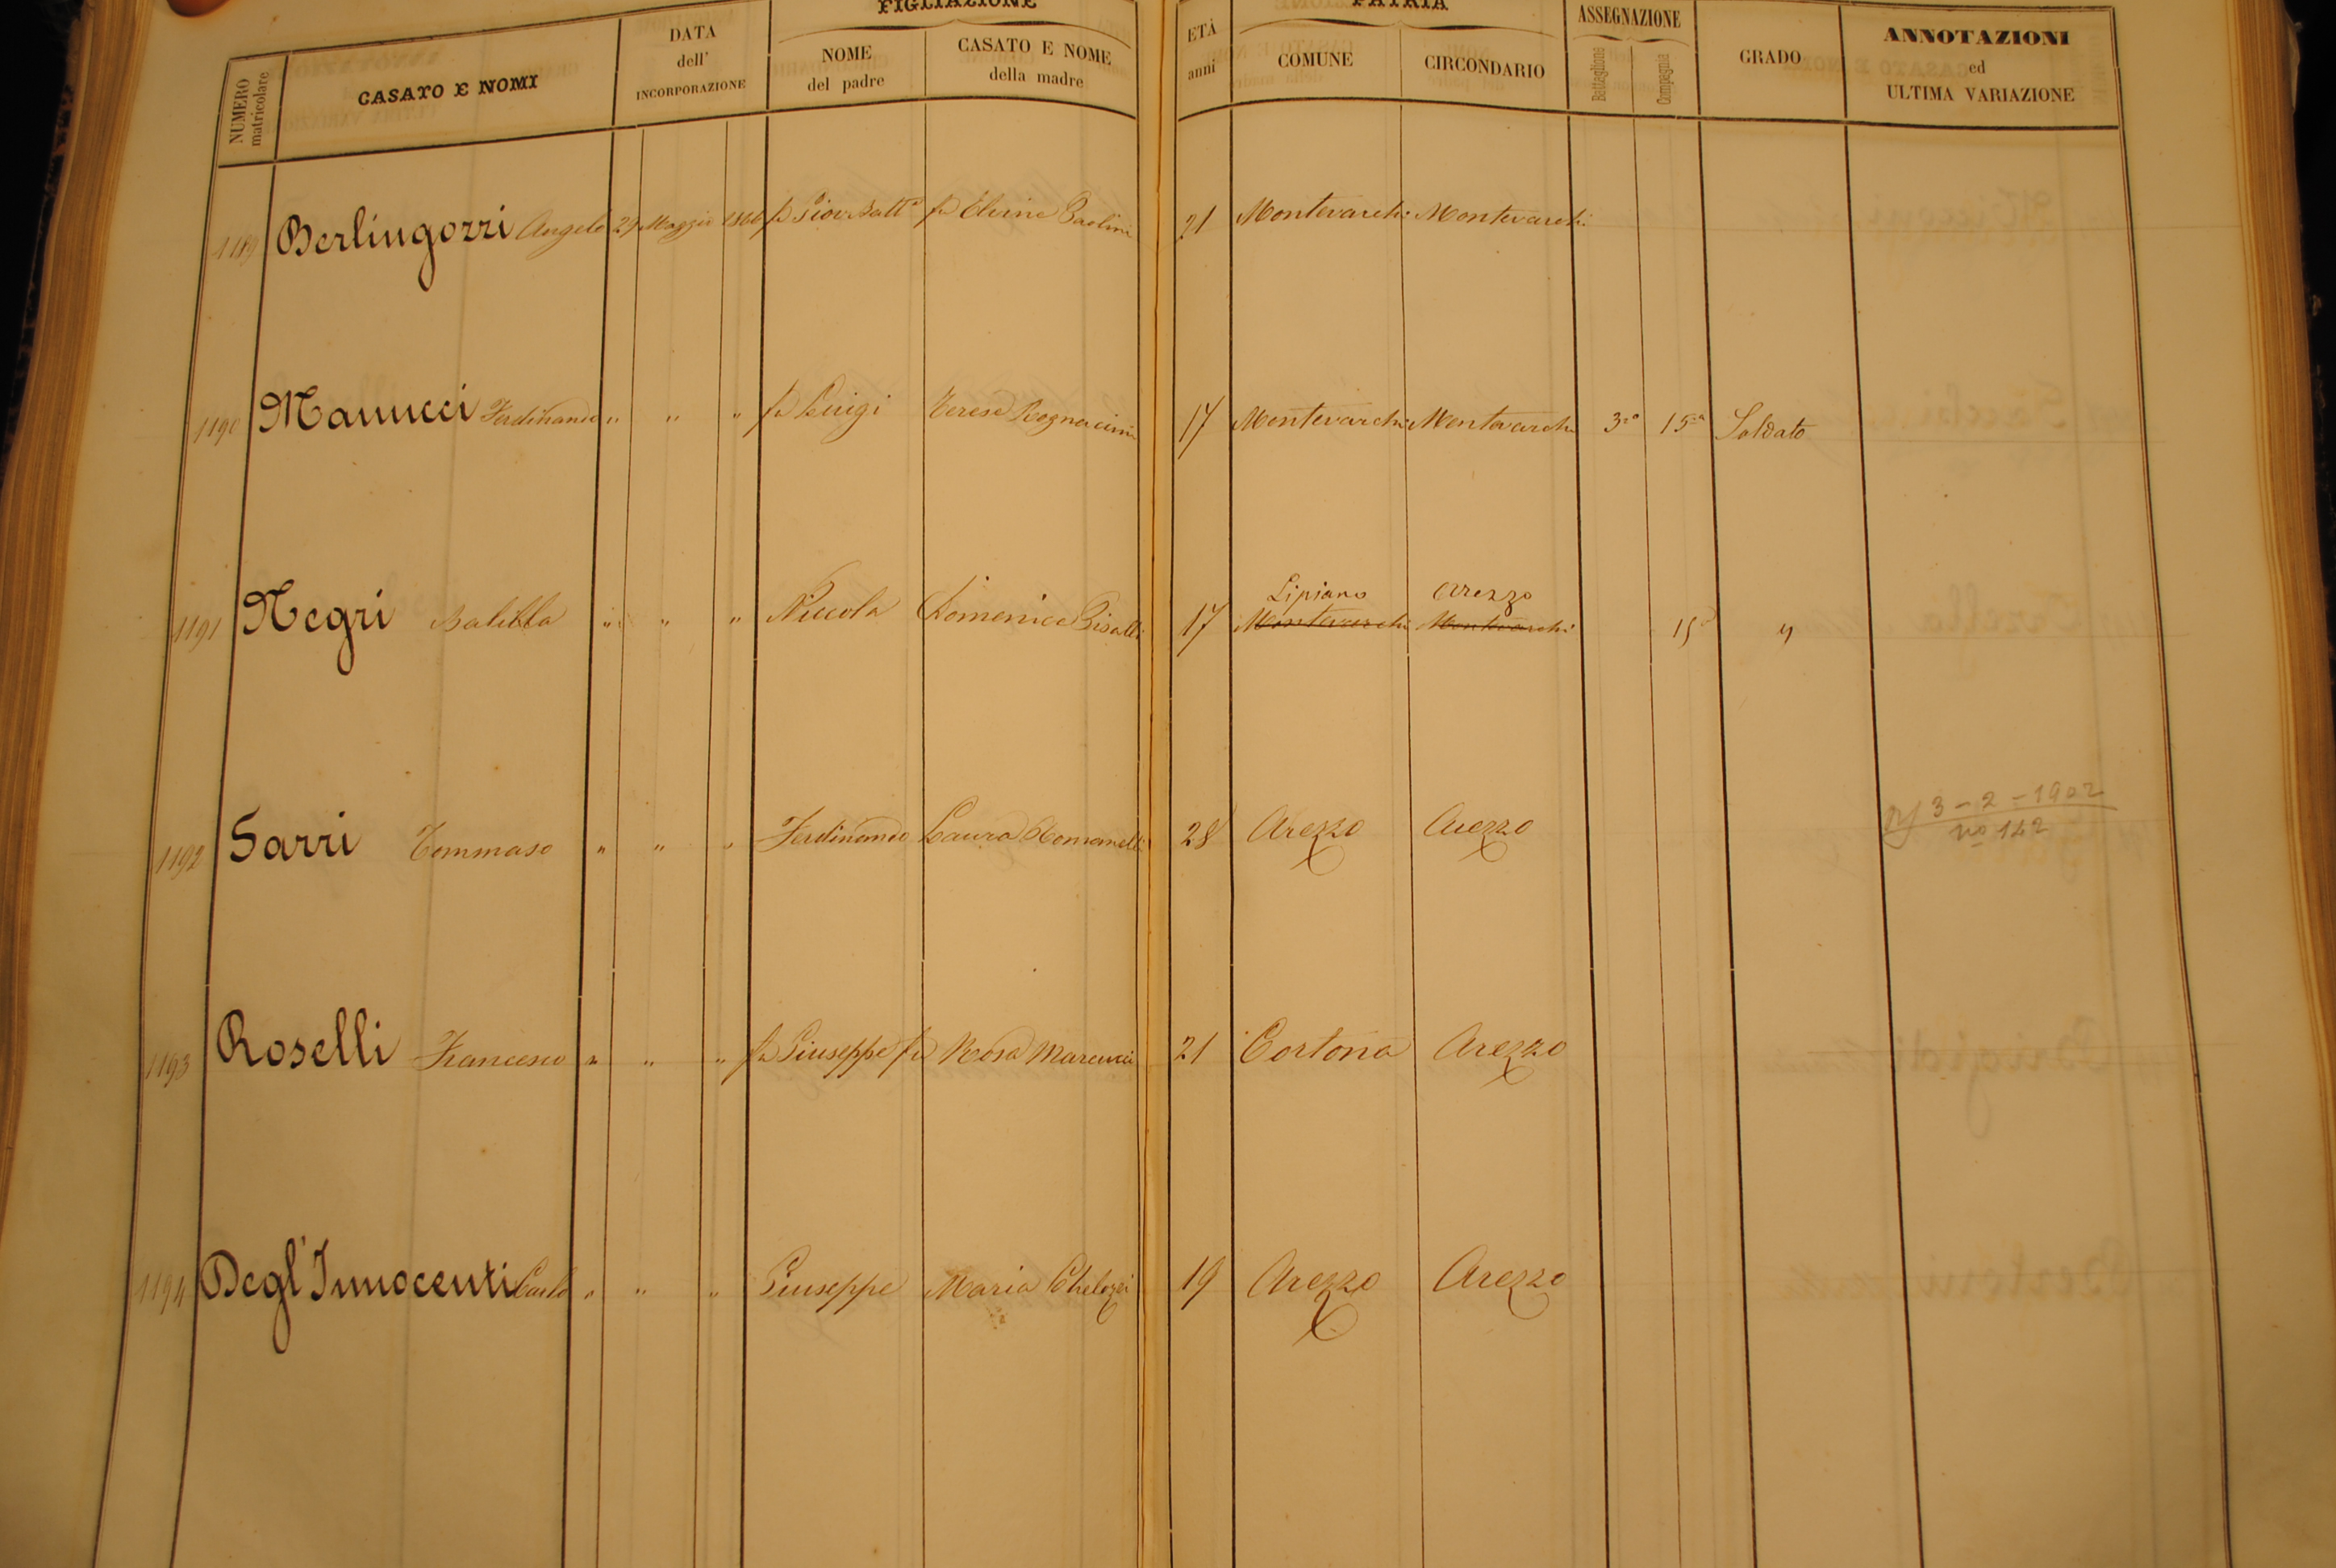 FIGLIAZIONE PATRIA ASSEGNAZIONE
NUMERO matricolare CASATO E NOMI DATA dell' INCORPORAZIONE NOME del padre CASATO E NOME della madre ETÀ anni COMUNE CIRCONDARIO Battaglione Compagnia GRADO ANNOTAZIONI ed ULTIMA VARIAZIONE
1189 Berlingozzi Angelo 29 Maggio 1866 fu Giov Batta fu Elvine Paolini 21 Montevarchi Montevarchi
1190 Manucci Ferdinando " " " fu Luigi Teresa 17 Montevarchi Montevarchi 3o 15a Soldato
Lipiano Arezzo
1191 Negri Balilla " " " Niccola Domenica 17 Montevarchi Montevarchi 15a "
3-2-1902
1192 Sarri Tommaso " " " Ferdinando Laura Romanelli 28 Arezzo Arezzo no 142
1193 Roselli Francesco " " " fu Giuseppe fu Rosa Marcucci 21 Cortona Arezzo
1194 Degl'Innocenti Carlo " " " Giuseppe Maria 19 Arezzo Arezzo